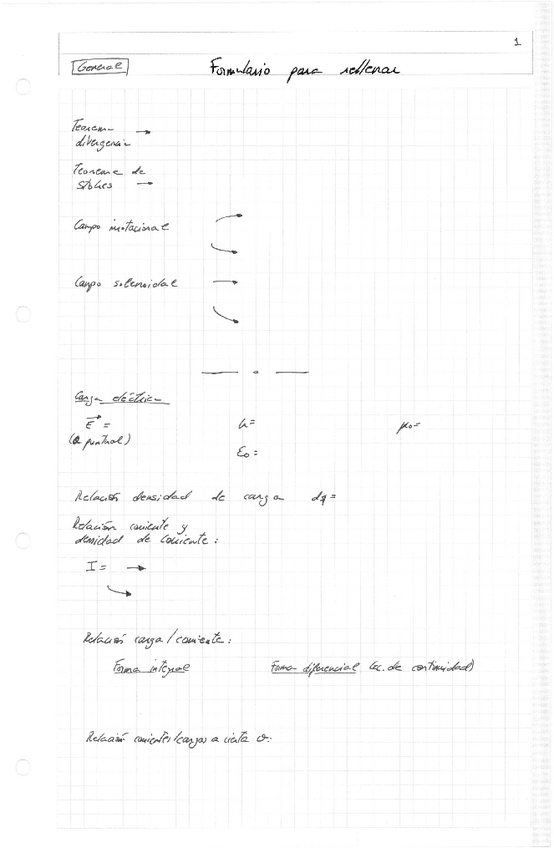 1
General
Formulario para rellenar
Teorema divergencia →
Teorema de Stokes →
Campo irrotacional
Campo solenoidal →
Carga eléctrica
E⃗ =
(Q puntual)
k=
μ₀=
ε₀=
Relación densidad de carga dq =
Relación corriente y
densidad de corriente:
I = →
Relación carga/corriente:
Forma integral
Forma diferencial (ec. de continuidad)
Relación corrientes/cargas a cierta v: